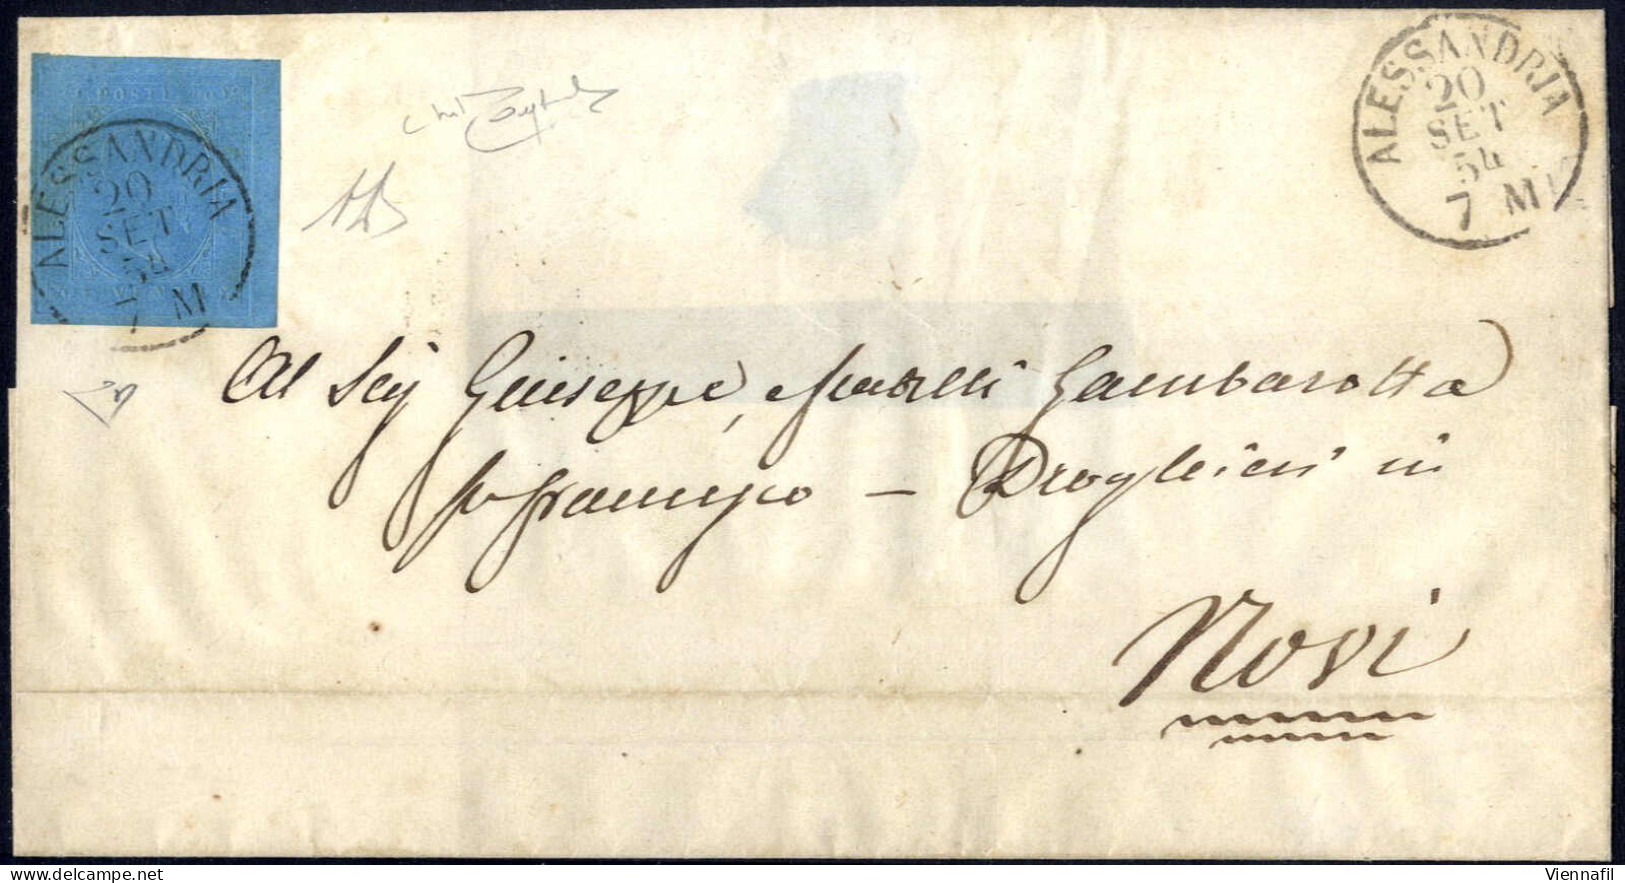 POSTE
ALESSANDRIA
20
SET
54
7 M
ALESSANDRIA
20
SET
54
7 M
Al Sig Giuseppe, Fratelli Gambarotta
fu Francesco – Droghieri in
Novi
Viennafil